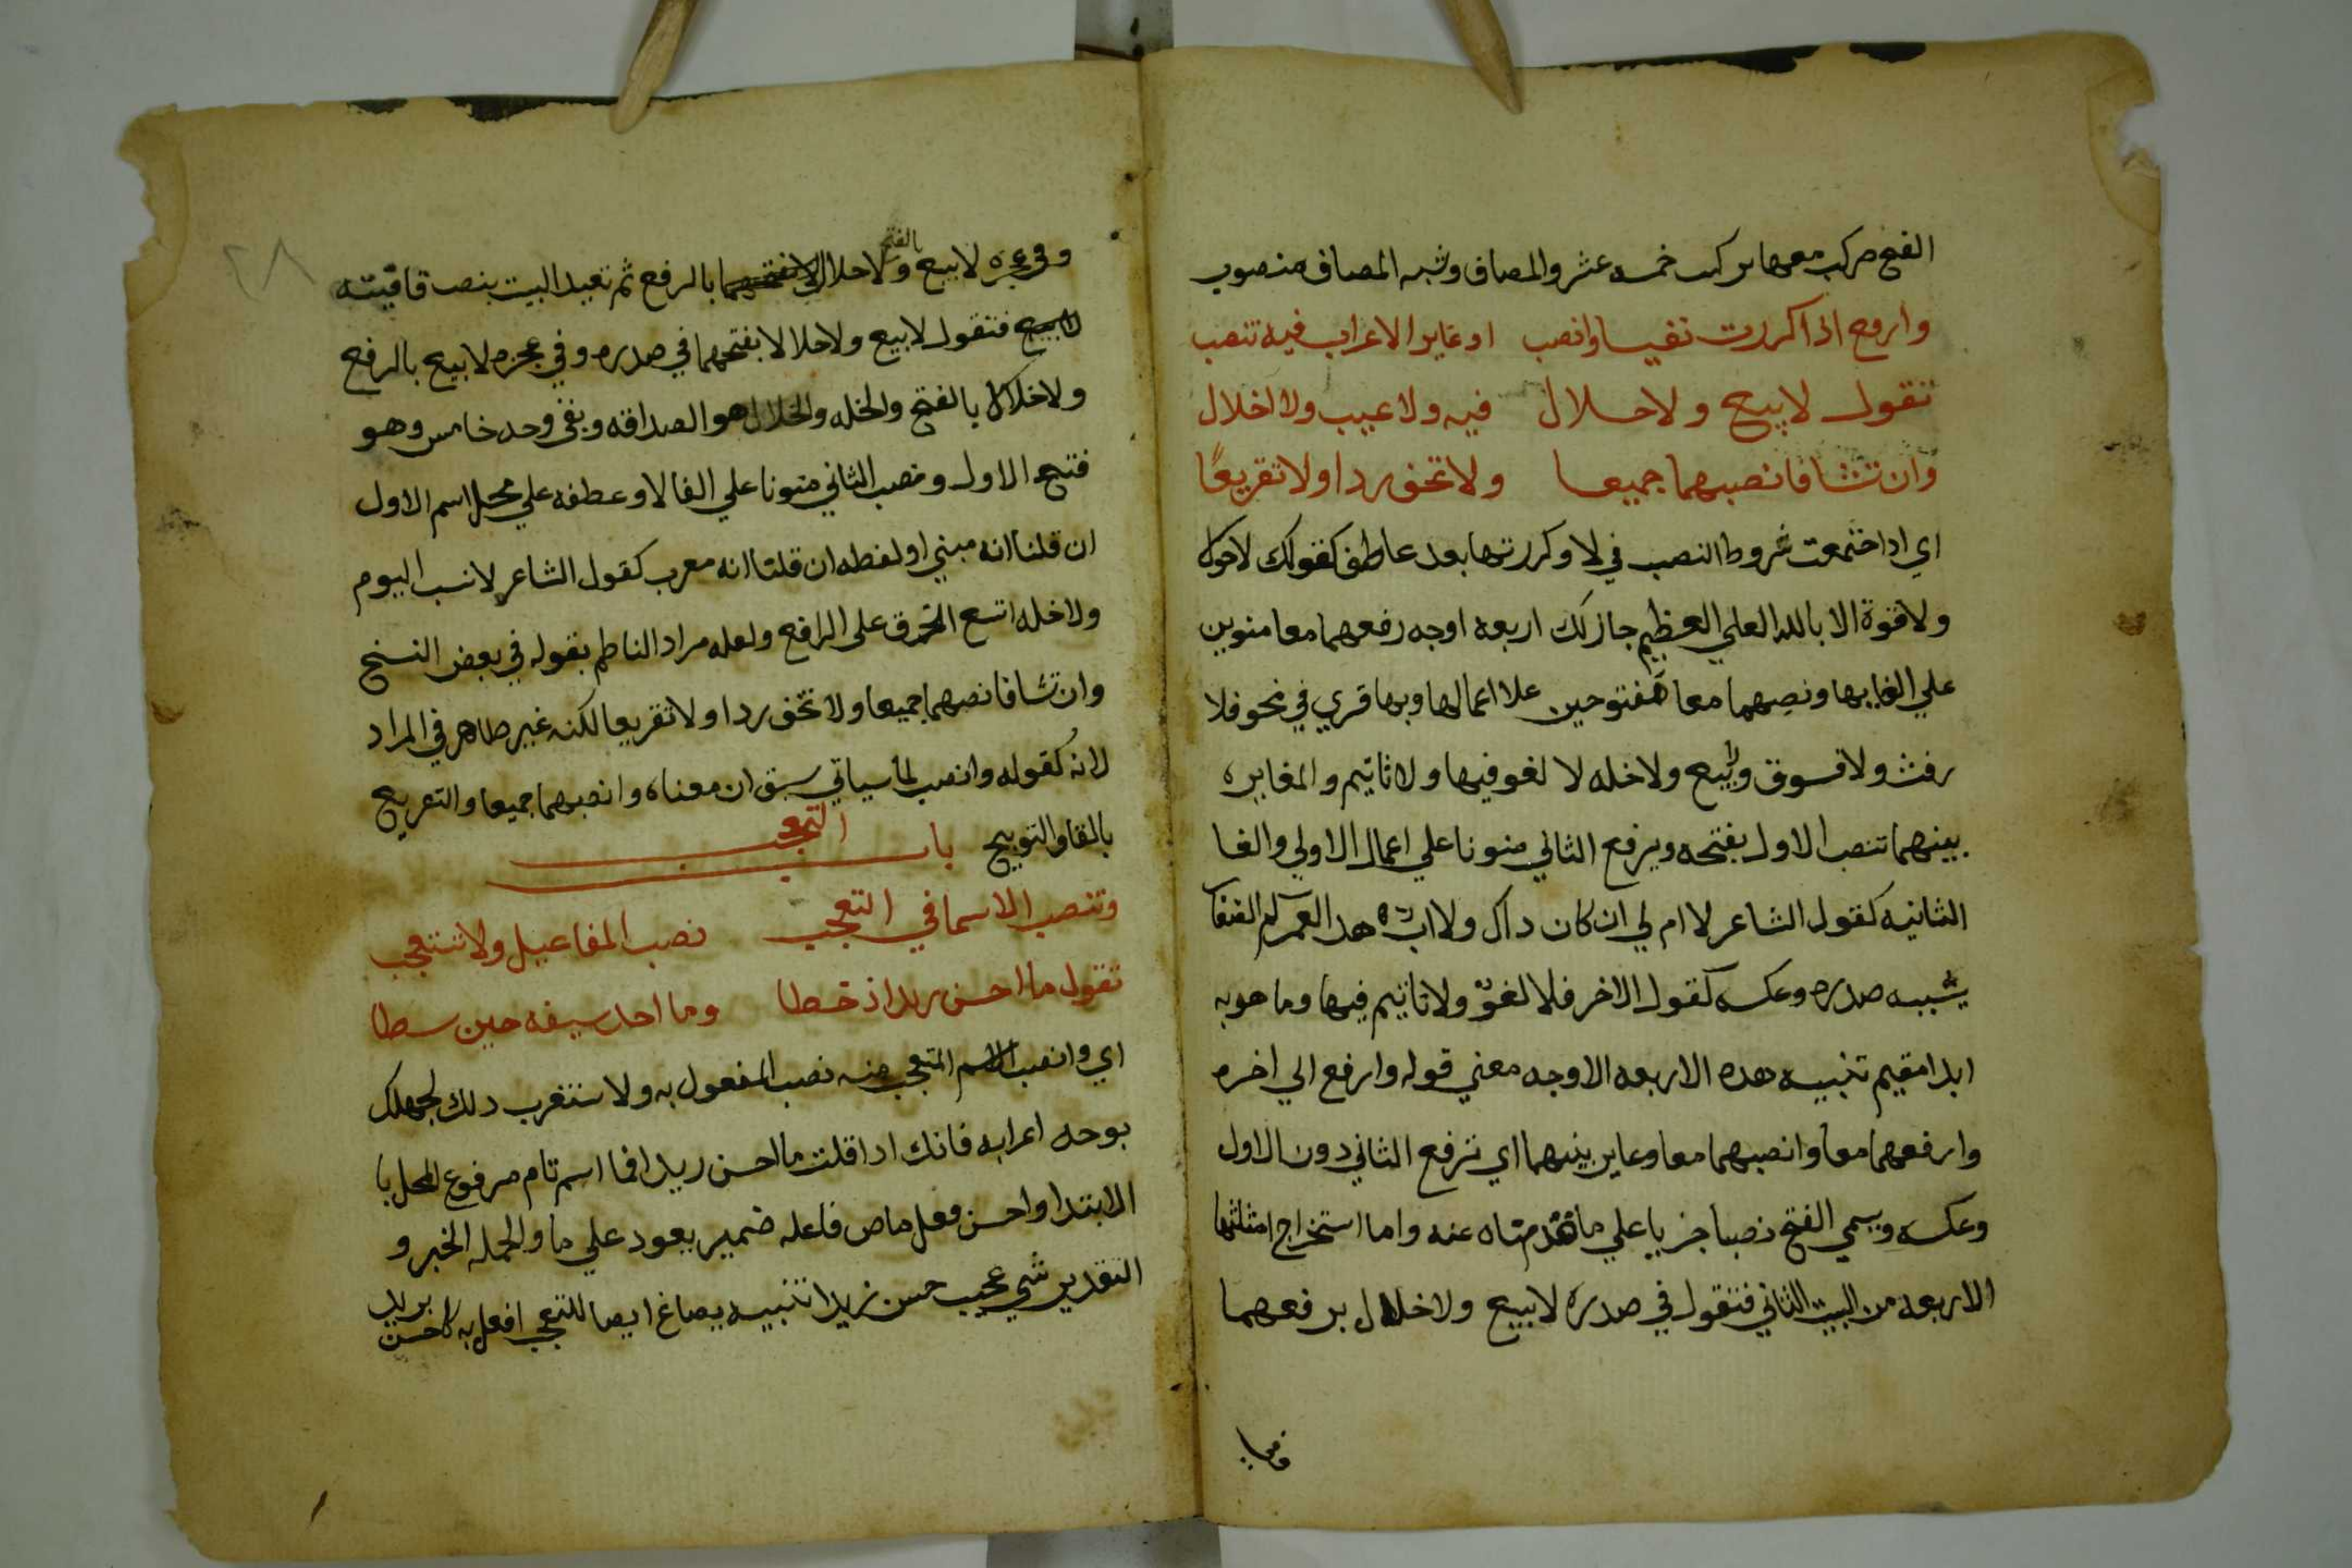 الفتح مركب معها تركيب خمسه عشر والمضاف وشبه المضاف منصوب
وارفع اذا كررت نفيا وانصب او غاير الاعراب فيه تنصب
تقول لا بيع ولا خلال فيه ولا عيب ولا اخلال
وان تشا فانصبهما جميعا ولا تخف ردا ولا تقريعًا
اي اذا اجتمعت شروط النصب في لا وكررتها بعد عاطف كقولك لا حول
ولا قوة الا بالله العلي العظيم جاز لك اربعة اوجه رفعهما معا منوين
علي الغايها ونصبهما معا مفتوحين علا اعمالها وبها قري في نحو فلا
رفث ولا فسوق ولا بيع ولا خله لا لغو فيها ولا تاثيم والمغايره
بينهما تنصب الاول بفتحه ويرفع الثاني منونا علي اعمال الاولي والغا
الثانيه كقول الشاعر لا ام لي ان كان ذاك ولا اب هذا لعمركم
صدره وعكسه كقول الاخر فلا لغوٌ ولا تاثيم فيها وما هو به
ابدا مقيم تنبيه هذه الاربعه الاوجه معني قوله وارفع الي اخره
وارفعهما معا وانصبهما معا وغاير بينهما اي ترفع الثاني دون الاول
وعكسه ويسمي الفتح نصبا جريا علي ما قدمناه عنه واما استخراج امثلتها
الاربعه من البيت الثاني فتقول في صدره لا بيع ولا خلال برفعهما
وفي عجزه لا بيع بالفتح ولا خلال بالرفع ثم تعيد البيت بنصب قافيته
فتقول لا بيع ولا خلالا بفتحهما في صدره وفي عجزه لا بيع بالرفع
ولا خلال بالفتح والخله والخلال هو الصداقه وبقي وجه خامس وهو
فتح الاول ونصب الثاني منونا علي الغا لا وعطفه علي محل اسم الاول
ان قلنا انه مبني او لفظه ان قلنا انه معرب كقول الشاعر لا نسب اليوم
ولا خله اتسع الخرق علي الراقع ولعله مراد الناظم بقوله في بعض النسخ
وان تشا فانصبهما جميعا ولا تخف ردا ولا تقريعا لكنه غير ظاهر في المراد
لانه كقوله وانصب لما سياتي سبق ان معناه وانصبهما جميعا والتقريع
بالقاف التوبيخ باب التعجب
وتنصب الاسما في التعجب نصب المفاعيل ولا تستعجب
تقول ما احسن زيدا اذ خطا وما احد سيفه حين سطا
اي وانصب الاسم المتعجب منه نصب المفعول به ولا تستغرب ذلك لجهلك
بوجه اعرابه فانك اذا قلت ما احسن زيدا فما اسم تام مرفوع المحل با
الابتدا واحسن فعل ماض فاعله ضمير يعود علي ما والجمله الخبر و
التقدير شي عجيب حسن زيدا تنبيه يصاغ ايضا للتعجب افعل به كاحسن بزيد
٢٨